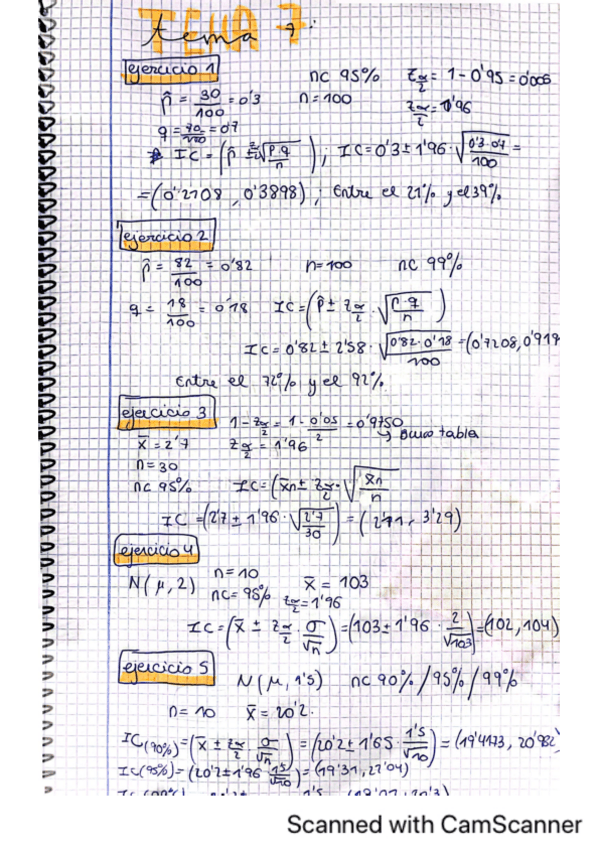 tema 7:
ejercicio 1
nc 95% z α/2 = 1-0'95 = 0'005
p̂ = 30/100 = 0'3 n = 100 z α/2 = 1'96
q = 70/100 = 0'7
IC = (p̂ ± z√(p·q/n)); IC = 0'3 ± 1'96·√(0'3·0'7/100) =
= (0'2108, 0'3898); Entre el 21% y el 39%.
ejercicio 2
p̂ = 82/100 = 0'82 n = 100 nc 99%
q = 18/100 = 0'18 IC = (p̂ ± z α/2 · √(p·q/n))
IC = 0'82 ± 2'58·√(0'82·0'18/100) = (0'7208, 0'919
Entre el 72% y el 92%.
ejercicio 3
1 - z α/2 = 1 - 0'05/2 = 0'9750 → Busco tabla
x̄ = 2'7 z α/2 = 1'96
n = 30
nc 95% IC = (x̄n ± z α/2 · √(x̄n/n
IC = (2'7 ± 1'96·√(2'7/30)) = (2'11, 3'29)
ejercicio 4
N(μ, 2) n = 10 nc = 95% x̄ = 103
z α/2 = 1'96
IC = (x̄ ± z α/2 · σ/√n) = (103 ± 1'96 · 2/√103) = (102, 104)
ejercicio 5
N(μ, 1'5) nc 90% / 95% / 99%
n = 10 x̄ = 20'2.
IC(90%) = (x̄ ± z α/2 · σ/√n) = (20'2 ± 1'65 · 1'5/√10) = (19'4173, 20'982
IC(95%) = (20'2 ± 1'96 · 1'5/√10) = (19'31, 21'04)
Scanned with CamScanner